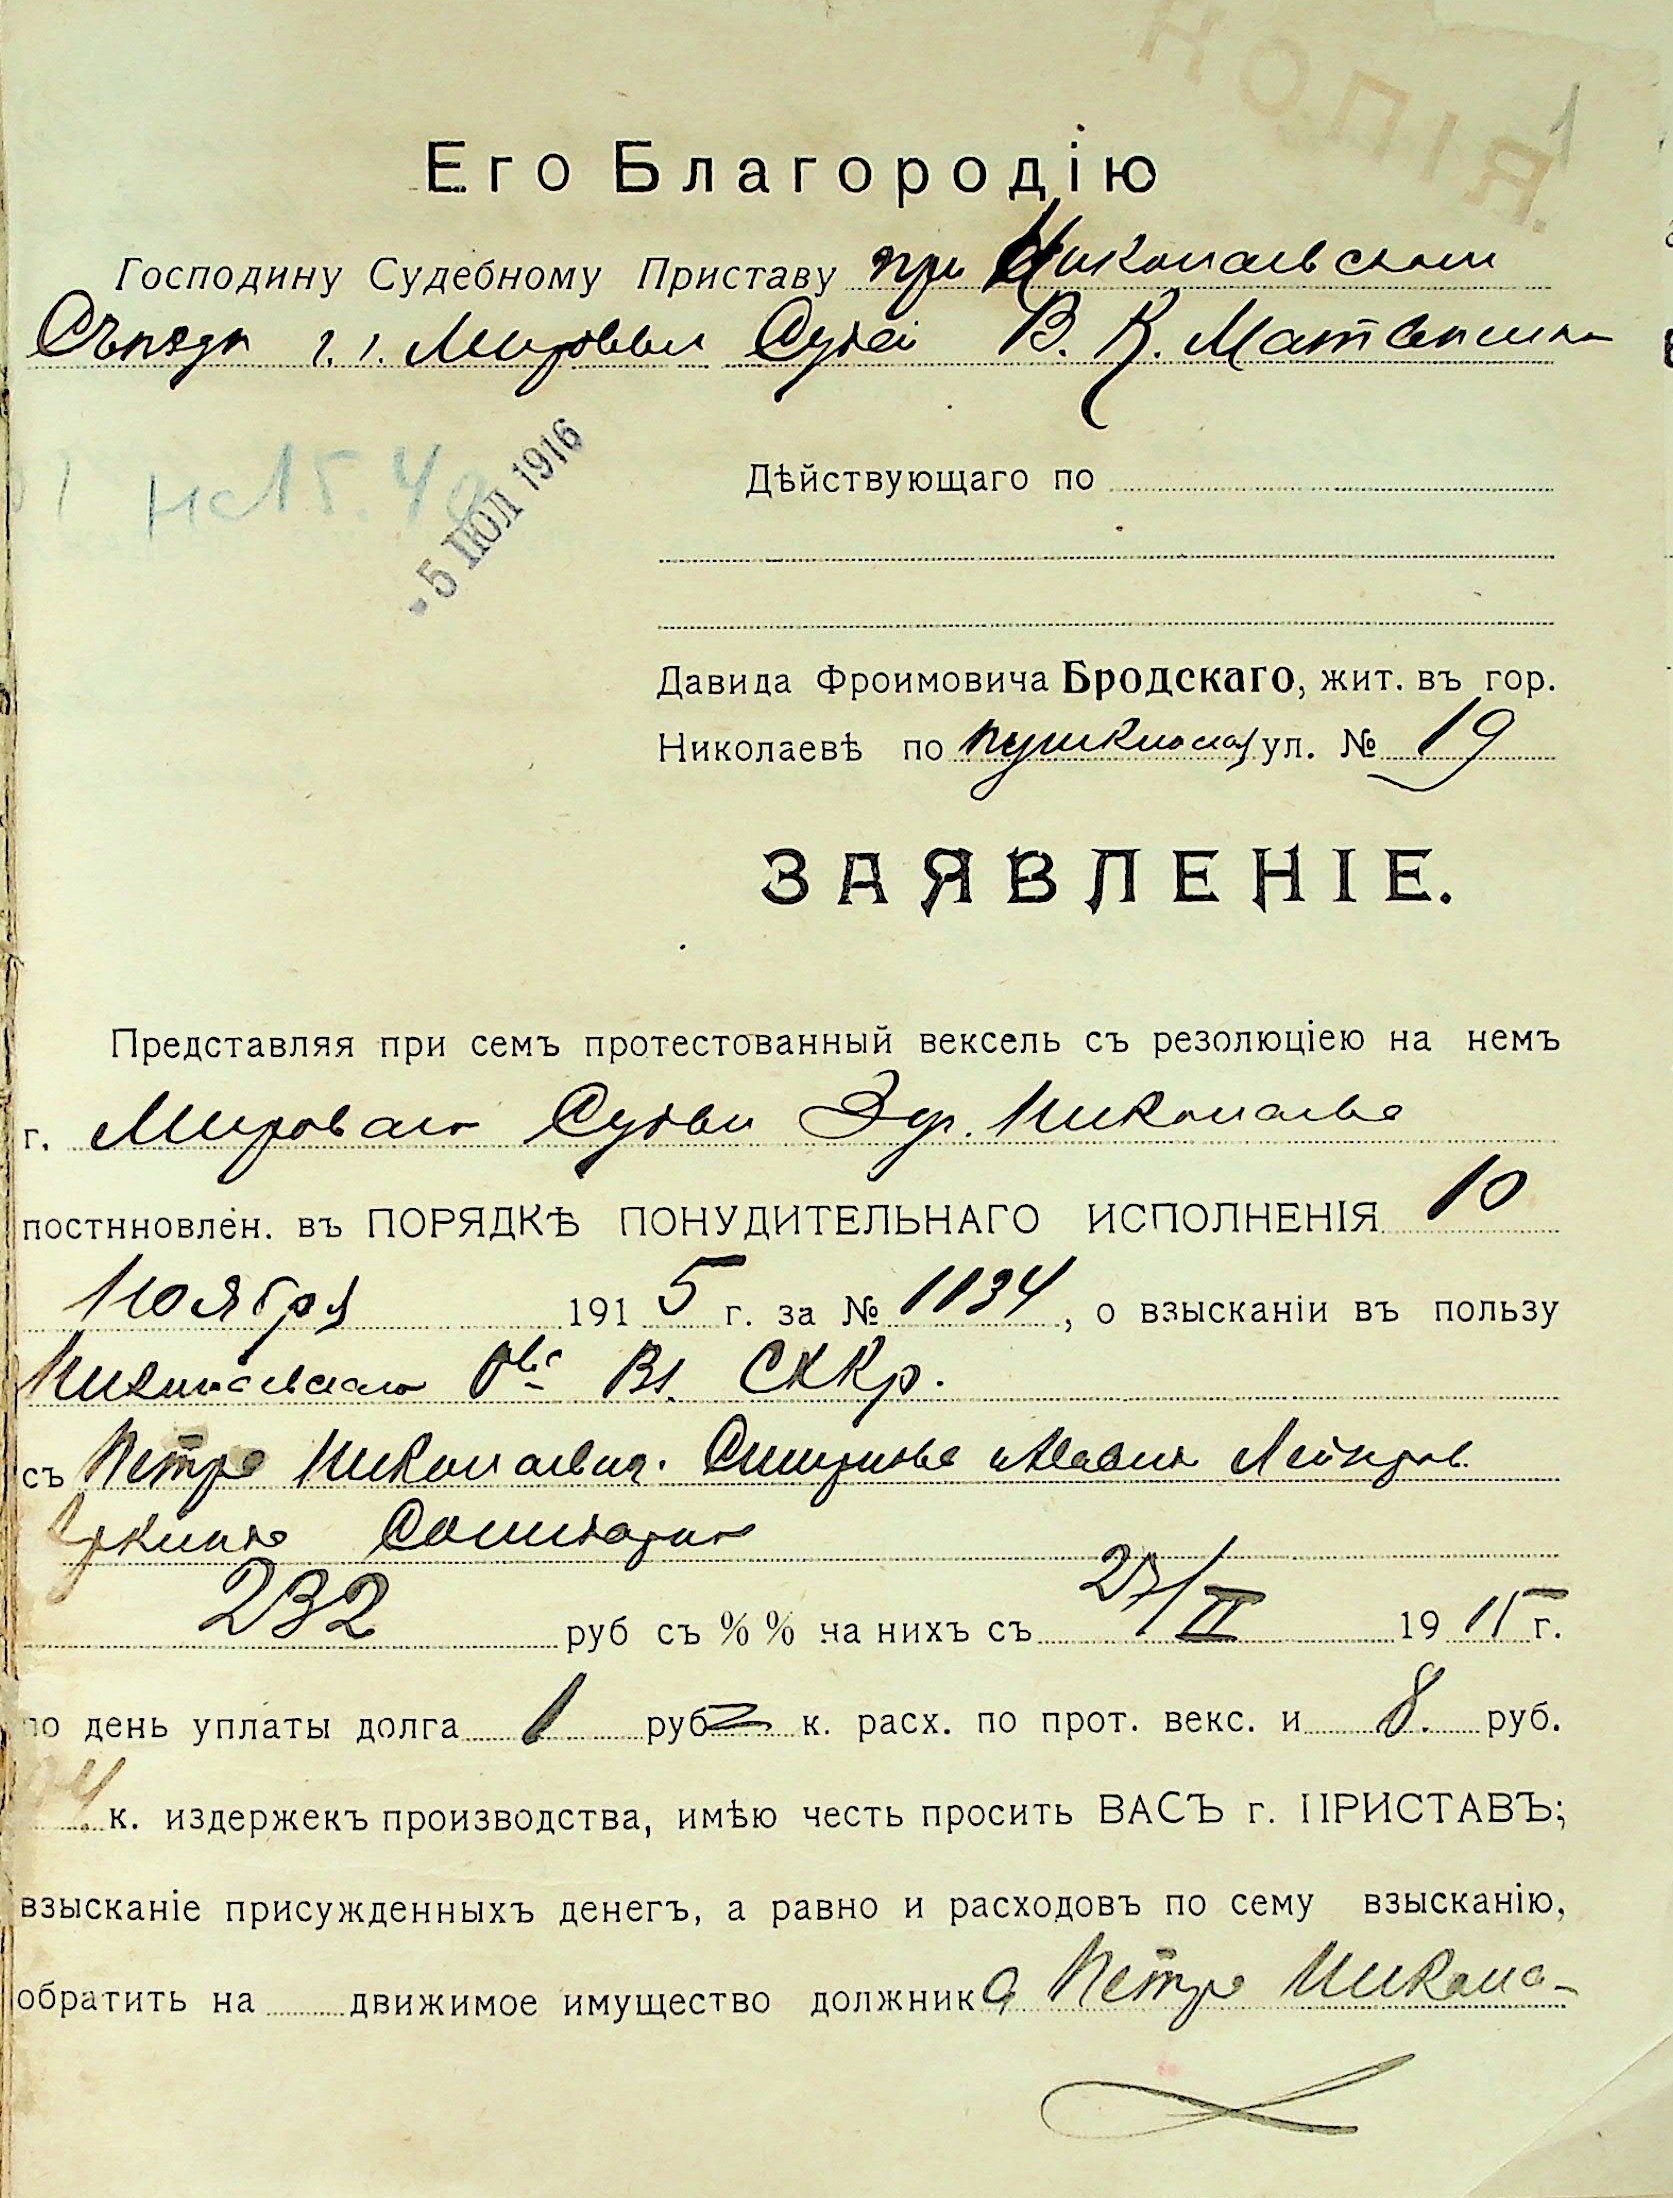 КОПІЯ.
1
Его Благородію
Господину Судебному Приставу при Николаевском
Съѣздѣ г. г. Мировых Судей В. К. Матвѣенко
- 5 ІЮЛ 1916
Дѣйствующаго по
Давида Фроимовича Бродскаго, жит. въ гор.
Николаевѣ по Пушкинской ул. № 19
ЗАЯВЛЕНІЕ.
Представляя при семъ протестованный вексель съ резолюціею на немъ
г. Мирового Судьи гор. Николаева
постнновлен. въ ПОРЯДКѢ ПОНУДИТЕЛЬНАГО ИСПОЛНЕНІЯ 10
Ноября 1915 г. за № 1134, о взысканіи въ пользу
Николаевскаго Вз. Кр.
съ Петра Николаевич.
Солидарно
232 руб съ % % на нихъ съ 27/II 1915 г.
по день уплаты долга 1 руб — к. расх. по прот. векс. и 8 руб.
к. издержекъ производства, имѣю честь просить ВАСЪ г. ПРИСТАВЪ;
взысканіе присужденныхъ денегъ, а равно и расходовъ по сему взысканію,
обратить на движимое имущество должника Петра Никола-